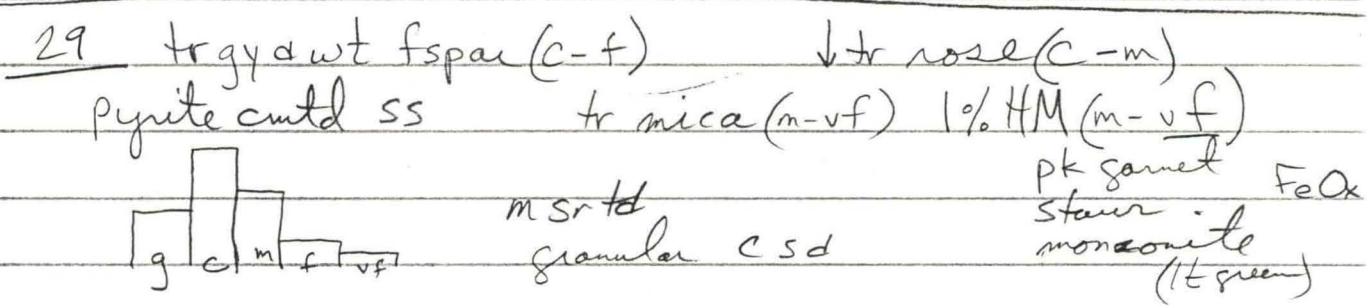 29 tr gy & wt fspar (c-f) ↓ tr rose (c-m)
pyrite cmtd ss tr mica (m-vf) 1% HM (m-vf)
pk garnet FeOx
m srtd staur.
g c m f vf granular c sd monzonite
(lt green)